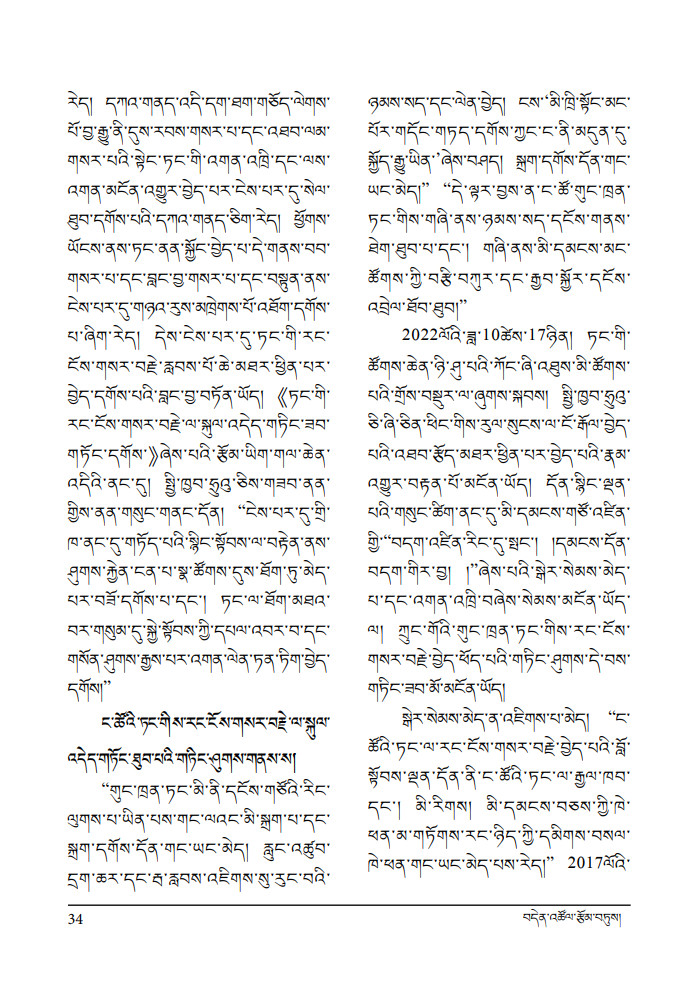 རེད། དཀའ་གནད་འདི་དག་ཐག་གཅོད་ལེགས་
པོ་བྱ་རྒྱུ་ནི་དུས་རབས་གསར་པ་དང་འཐབ་ལམ་
གསར་པའི་སྟེང་ཏང་གི་འགན་འཁྲི་དང་ལས་
འགན་མངོན་འགྱུར་བྱེད་པར་ངེས་པར་དུ་སེལ་
ཐུབ་དགོས་པའི་དཀའ་གནད་ཅིག་རེད། ཕྱོགས་
ཡོངས་ནས་ཏང་ནན་སྐྱོང་བྱེད་པ་དེ་གནས་བབ་
གསར་པ་དང་བླང་བྱ་གསར་པ་དང་བསྟུན་ནས་
ངེས་པར་དུ་གཉའ་རུས་མཁྲེགས་པོ་འཐོག་དགོས་
པ་ཞིག་རེད། དེས་ངེས་པར་དུ་ཏང་གི་རང་
ངོས་གསར་བརྗེ་རླབས་པོ་ཆེ་མཐར་ཕྱིན་པར་
བྱེད་དགོས་པའི་བླང་བྱ་བཏོན་ཡོད། 《ཏང་གི་
རང་ངོས་གསར་བརྗེ་ལ་སྐུལ་འདེད་གཏིང་ཟབ་
གཏོང་དགོས་》ཞེས་པའི་རྩོམ་ཡིག་གལ་ཆེན་
འདིའི་ནང་དུ། སྤྱི་ཁྱབ་ཧྲུའུ་ཅིས་གཟབ་ནན་
གྱིས་ནན་གསུང་གནང་དོན། “ངེས་པར་དུ་གྲི་
ཁ་ནང་དུ་གཏོད་པའི་སྙིང་སྟོབས་ལ་བརྟེན་ནས་
ཤུགས་རྐྱེན་ངན་པ་སྣ་ཚོགས་དུས་ཐོག་ཏུ་མེད་
པར་བཟོ་དགོས་པ་དང་། ཏང་ལ་ཐོག་མཐའ་
བར་གསུམ་དུ་སྐྱེ་སྟོབས་ཀྱི་དཔལ་འབར་བ་དང་
གསོན་ཤུགས་རྒྱས་པར་འགན་ལེན་ཏན་ཏིག་བྱེད་
དགོས།”
ང་ཚོའི་ཏང་གིས་རང་ངོས་གསར་བརྗེ་ལ་སྐུལ་
འདེད་གཏོང་ཐུབ་པའི་གཏིང་ཤུགས་གནས་ས།
“གུང་ཁྲན་ཏང་མི་ནི་དངོས་གཙོའི་རིང་
ལུགས་པ་ཡིན་པས་གང་ལའང་མི་སྐྲག་པ་དང་
སྐྲག་དགོས་དོན་གང་ཡང་མེད། རླུང་འཚུབ་
དྲག་ཆར་དང་རྦ་རླབས་འཇིགས་སུ་རུང་བའི་
ཉམས་སད་དང་ལེན་བྱེད། ངས་‘མི་ཁྲི་སྟོང་མང་
པོར་གདོང་གཏད་དགོས་ཀྱང་ང་ནི་མདུན་དུ་
སྐྱོད་རྒྱུ་ཡིན་’ཞེས་བཤད། སྐྲག་དགོས་དོན་གང་
ཡང་མེད།” “དེ་ལྟར་བྱས་ན་ང་ཚོ་གུང་ཁྲན་
ཏང་གིས་གཞི་ནས་ཉམས་སད་དངོས་གནས་
ཐེག་ཐུབ་པ་དང་། གཞི་ནས་མི་དམངས་མང་
ཚོགས་ཀྱི་བརྩི་བཀུར་དང་རྒྱབ་སྐྱོར་དངོས་
འབྲེལ་ཐོབ་ཐུབ།”
2022ལོའི་ཟླ་10ཚེས་17ཉིན། ཏང་གི་
ཚོགས་ཆེན་ཉི་ཤུ་པའི་ཀོང་ཞི་འཐུས་མི་ཚོགས་
པའི་གྲོས་བསྡུར་ལ་ཞུགས་སྐབས། སྤྱི་ཁྱབ་ཧྲུའུ་
ཅི་ཞི་ཅིན་ཕིང་གིས་རུལ་སུངས་ལ་ངོ་རྒོལ་བྱེད་
པའི་འཐབ་རྩོད་མཐར་ཕྱིན་པར་བྱེད་པའི་རྣམ་
འགྱུར་བརྟན་པོ་མངོན་ཡོད། དོན་སྙིང་ལྡན་
པའི་གསུང་ཚིག་ནང་དུ་མི་དམངས་གཙོ་འཛིན་
གྱི་“བདག་འཛིན་རིང་དུ་སྤང་། །དམངས་དོན་
བདག་གིར་བྱ། །”ཞེས་པའི་སྒེར་སེམས་མེད་
པ་དང་འགན་འཁྲི་བཞེས་སེམས་མངོན་ཡོད་
ལ། ཀྲུང་གོའི་གུང་ཁྲན་ཏང་གིས་རང་ངོས་
གསར་བརྗེ་བྱེད་ཕོད་པའི་གཏིང་ཤུགས་དེ་བས་
གཏིང་ཟབ་མོ་མངོན་ཡོད།
སྒེར་སེམས་མེད་ན་འཇིགས་པ་མེད། “ང་
ཚོའི་ཏང་ལ་རང་ངོས་གསར་བརྗེ་བྱེད་པའི་བློ་
སྟོབས་ལྡན་དོན་ནི་ང་ཚོའི་ཏང་ལ་རྒྱལ་ཁབ་
དང་། མི་རིགས། མི་དམངས་བཅས་ཀྱི་ཁེ་
ཕན་མ་གཏོགས་རང་ཉིད་ཀྱི་དམིགས་བསལ་
ཁེ་ཕན་གང་ཡང་མེད་པས་རེད།” 2017ལོའི་
34
བདེན་འཚོལ་རྩོམ་བཏུས།